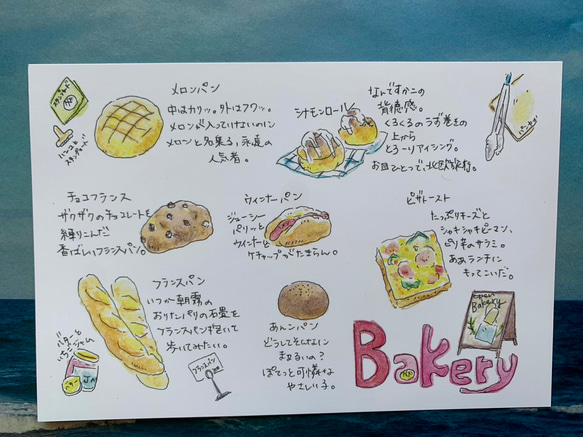 スタンプカード
ハンコと
スタンプカード
メロンパン
中はカリッ。外はフワッ。
メロンが入っていないのに
メロンと名乗る、永遠の
人気者。
シナモンロール
なんですかこの
背徳感。
くるくるのうず巻きの
上から
とろーりアイシング。
お皿ひとつで、北欧旅行。
チョコフランス
ザクザクのチョコレートを
練りこんだ
香ばしいフランスパン。
ウィンナーパン
ジューシー
パリッと
ウィンナーと
ケチャップがたまらん。
ピザトースト
たっぷりチーズと
シャキシャキピーマン、
ピリ辛のサラミ。
ああランチに
もってこいだ。
フランスパン
いつか朝霧の
おりたパリの石畳を
フランスパンを抱いて
歩いてみたい。
バターと
いちごジャム
バター
フランスパン
あんパン
どうしてそんなに
まあるいの?
ぽてっと可憐な
やさしい子。
Open
Bakery
Bakery